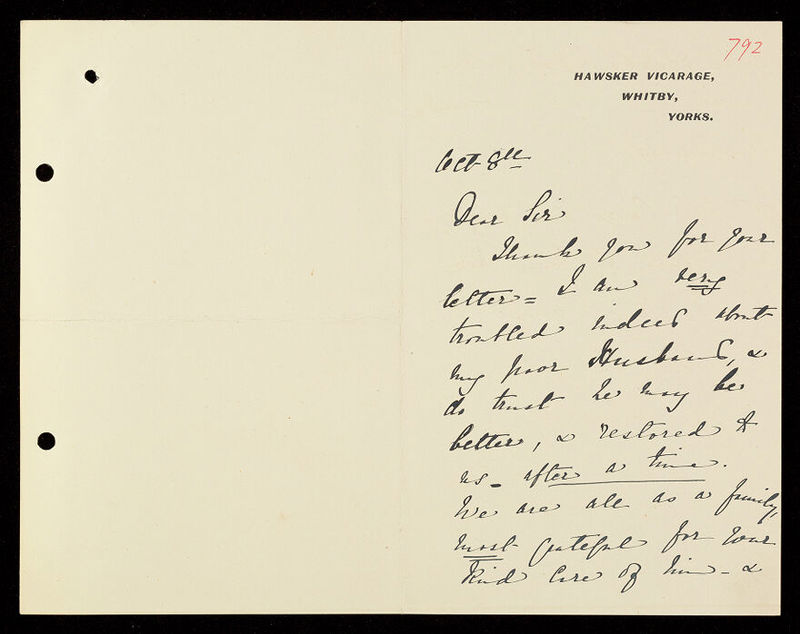 792
HAWSKER VICARAGE,
WHITBY,
YORKS.
Oct 8th
Dear Sir
Thank you for your
letter = I am very
troubled indeed about
my poor Husband, &
do trust he may be
better, & restored to
us - after a time.
We are all as a family,
most grateful for your
kind care of him - &